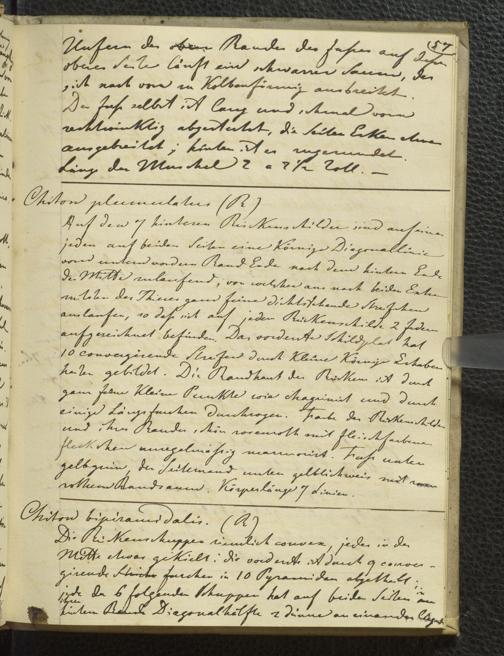 57
Unfern des obern Randes des Fußes auf dessen
oberer Seite läuft ein schwarzer Saum, der
sich nach vorn in Kolbenförmig ausbreitet.
Der Fuß selbst ist lang und schmal vorn
rechtwinklig abgestutzt, die Seiten Ecken etwas
ausgebreitet; hinten ist er zugerundet.
Länge der Muschel 2 a 2½ Zoll. —
Chiton plumulatus (R)
Auf den 7 hinteren Rückenschilder sind auf einem
jeden auf beiden Seiten eine Körnige Diagonallinie
vom untern vordern Rand Ende nach dem hintern Ende
der Mitte zulaufend, von welcher aus nach beiden Enden
des Thieres ganz feine dichtstehende Streifchen
auslaufen, so daß sich auf jeden Rückenschilde 2 Federn
aufgezeichnet befinden. Das vorderste Schild hat
10 convergirende Streifen durch Kleine Körnige Erhaben
heiten gebildet. Die Randhaut des Rückens ist durch
ganz feine Kleine Punkte wie chagrinirt und durch
einige Längsfurchen durchzogen. Farbe der Rückenschilder
und ihres Randes schön rosenroth mit fleischfarbene
fleckchen unregelmäßig marmorirt. Fuß unten
gelbgrün, der Seitenrand unten gelblichweis mit
rothem Randsaum. Körperlänge 7 Linien.
Chiton bipiramidalis. (R)
Die Rückenschuppen ziemlich convex, jedes in der
Mitte etwas gekielt; die vorderste ist durch 9 conver-
girende furchen in 10 Pyramiden abgetheilt;
jede der 6 folgenden Schuppen hat auf beiden Seiten in
hintern Rande Diagonalhälfte 2 dünne aneinander